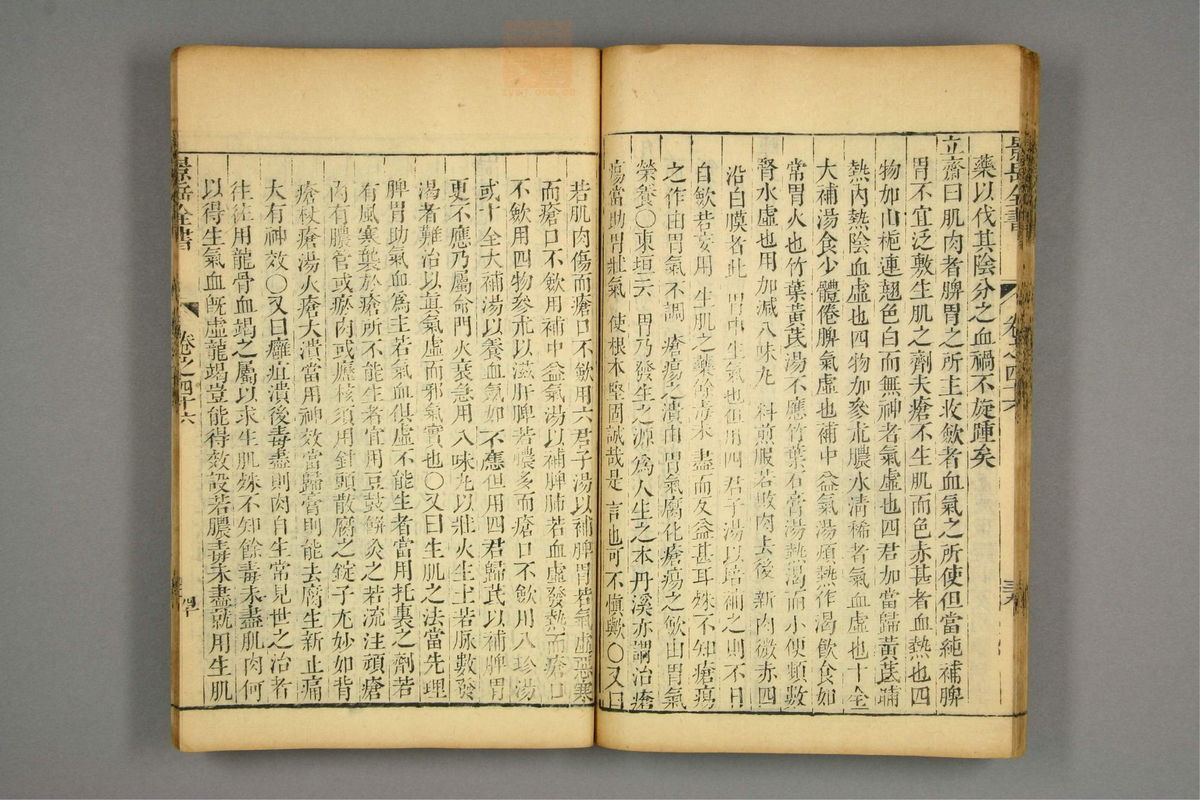 景岳全書
卷之四十六
藥以伐其陰分之血禍不旋踵矣
立齋曰肌肉者脾胃之所主收斂者血氣之所使但當純補脾
胃不宜泛敷生肌之劑夫瘡不生肌而色赤甚者血熱也四
物加山梔連翹色白而無神者氣虛也四君加當歸黃芪晡
熱內熱陰血虛也四物加參朮膿水清稀者氣血虛也十全
大補湯食少體倦脾氣虛也補中益氣湯煩熱作渴飲食如
常胃火也竹葉黃芪湯不應竹葉石膏湯熱渴而小便頻數
腎水虛也用加減八味丸料煎服若敗肉去後新肉微赤四
沿白膜者此胃中生氣也但用四君子湯以培補之則不日
自斂若妄用生肌之藥餘毒未盡而反益甚耳殊不知瘡瘍
之作由胃氣不調瘡瘍之潰由胃氣腐化瘡瘍之斂由胃氣
榮養○東垣云胃乃發生之源為人生之本丹溪亦謂治瘡
瘍當助胃壯氣使根本堅固誠哉是言也可不慎歟○又曰
若肌肉傷而瘡口不斂用六君子湯以補脾胃若氣虛惡寒
而瘡口不斂用補中益氣湯以補脾肺若血虛發熱而瘡口
不斂用四物參朮以滋肝脾若膿多而瘡口不斂用八珍湯
或十全大補湯以養血氣如不應但用四君歸芪以補脾胃
更不應乃屬命門火衰急用八味丸以壯火生土若脉數發
渴者難治以真氣虛而邪氣實也○又曰生肌之法當先理
脾胃助氣血為主若氣血俱虛不能生者當用托裏之劑若
有風寒襲於瘡所不能生者宜用豆豉餅灸之若流注頑瘡
內有膿管或瘀肉或癧核須用針頭散腐之錠子尤妙如背
瘡杖瘡湯火瘡大潰當用神效當歸膏則能去腐生新止痛
大有神效○又曰癰疽潰後毒盡則肉自生常見世之治者
往往用龍骨血竭之屬以求生肌殊不知餘毒未盡肌肉何
以得生氣血旣虛龍竭豈能得效設若膿毒未盡就用生肌
景岳全書
卷之四十六